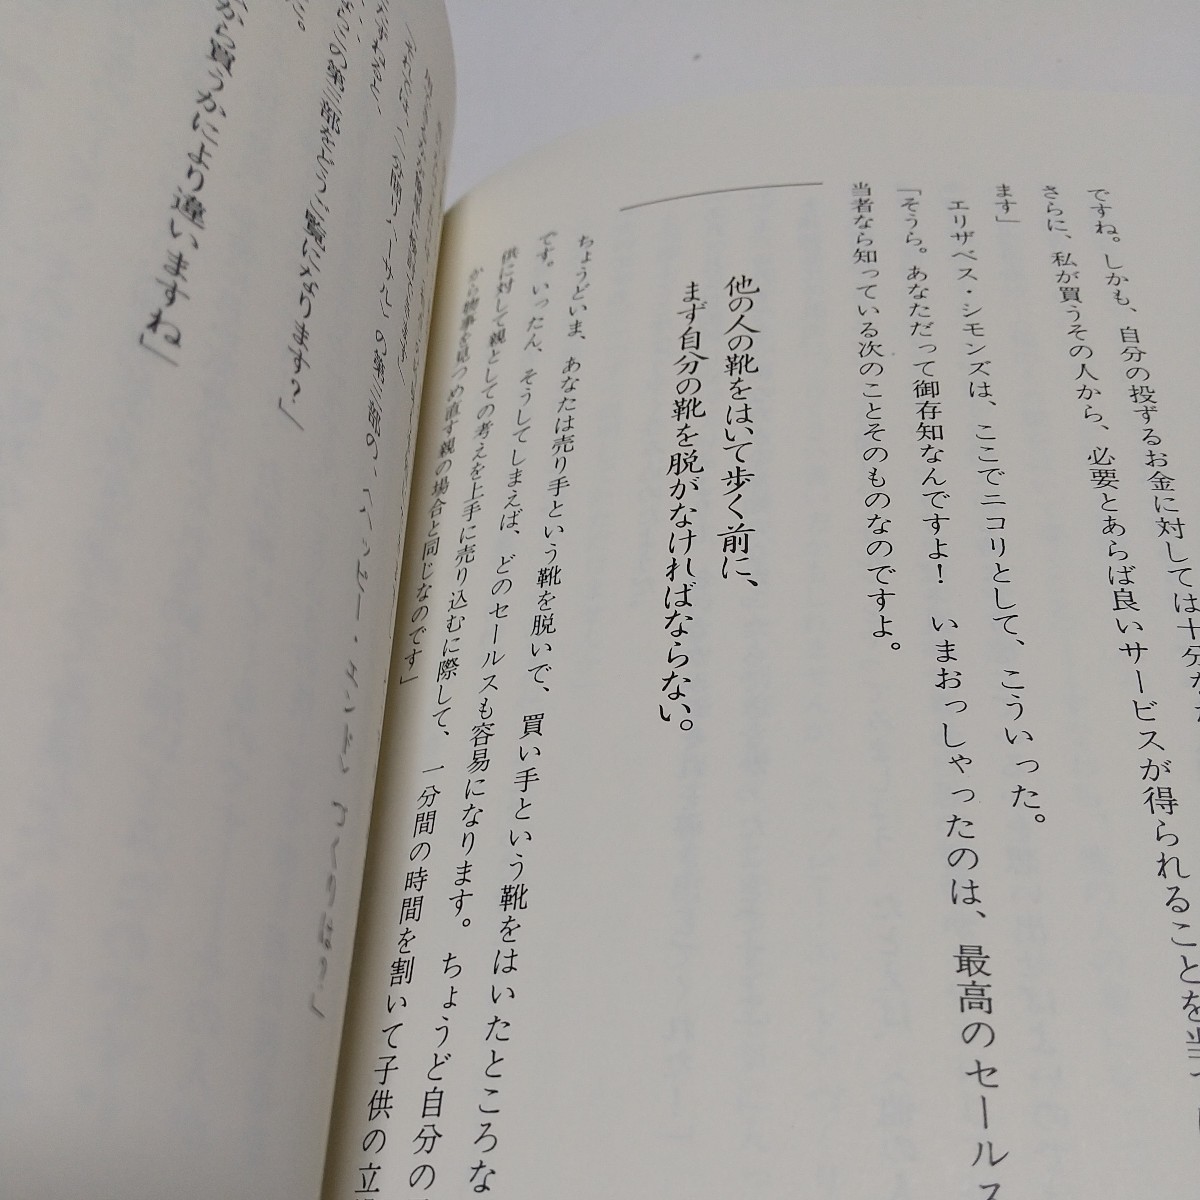 ですね。しかも、自分の投ずるお金に対しては十分な
さらに、私が買うその人から、必要とあらば良いサービスが得られることを
ます」
エリザベス・シモンズは、ここでニコリとして、こういった。
「そうら。あなただって御存知なんですよ！　いまおっしゃったのは、最高のセールス
当者なら知っている次のことそのものなのですよ。
他の人の靴をはいて歩く前に、
まず自分の靴を脱がなければならない。
ちょうどいま、あなたは売り手という靴を脱いで、買い手という靴をはいたところな
です。いったん、そうしてしまえば、どのセールスも容易になります。ちょうど自分の
供に対して親としての考えを上手に売り込むに際して、一分間の時間を割いて子供の立
から物事を見つめ直す親の場合と同じなのです」
の第三部の、ハッピー・エンド
この第三部をどうご覧になります？」
から買うかにより違いますね」